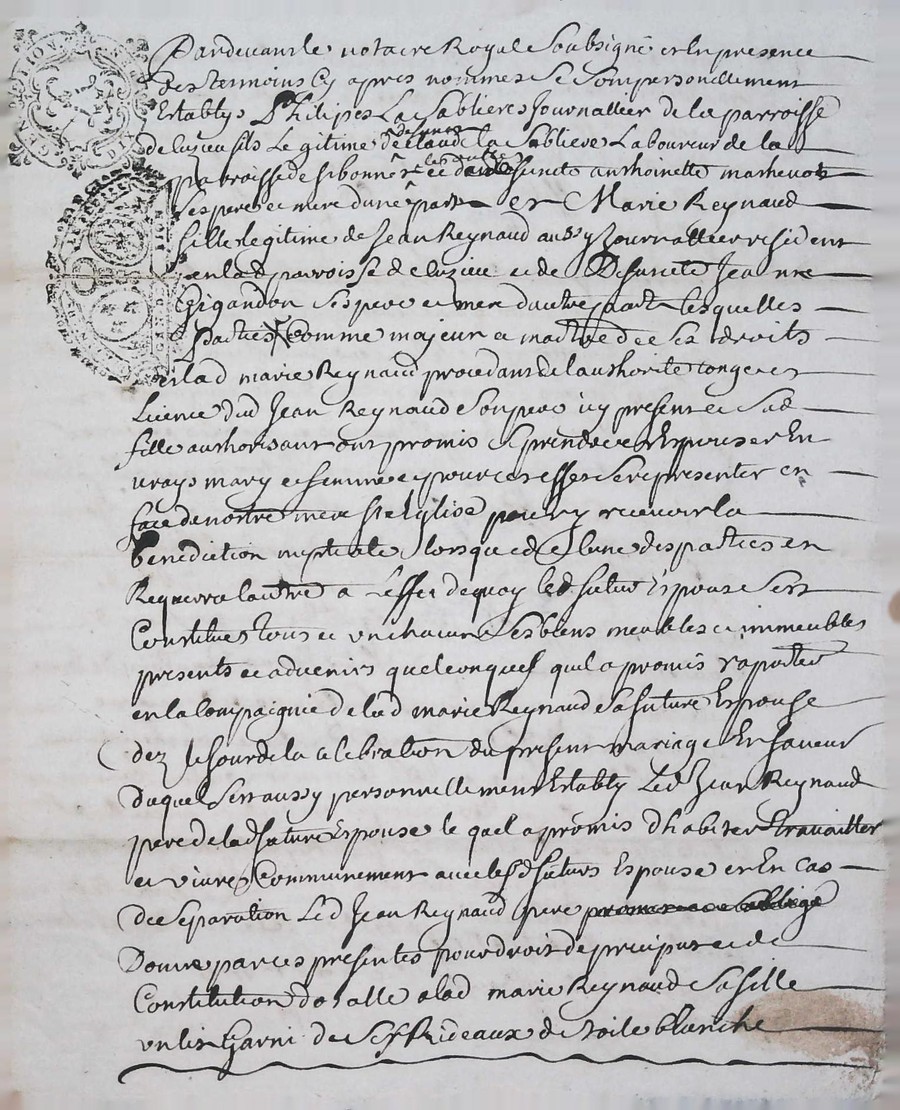 Pardevant le notaire Royal Soubsigné et En presence
des tesmoins Cy apres nommes Se Sont personellement
Establys Philipes La Sabliere Journallier de la parroisse
de luzieu fils Legitime de defunt Claude la Sabliere Laboureur de la
parroisse de st bonnet et de defuncte anthoinette mathevot
Ses pere et mere d'une part et Marie Reynaud
fille legitime de Jean Reynaud aussy Journallier resident
en lad parroisse de luzieu et de Defuncte Jeanne
Gigandon Ses pere et mere d'autre part Lesquelles
Parties Comme majeur et maitre de Ses droits
et lad marie Reynaud procedant de l'authorite conge et
Licence dud Jean Reynaud Son pere icy present et Sad
fille authorisant ont promis Se prendre et Espouser En
vrays mary et femme et pour cet effet Se representer en
face de nostre mere Ste Eglise pour y recevoir la
benediction nuptiale lorsque de lune des parties en
Requerra l'autre a L'effet de quoy led futur Espoux Sest
Constitue tous et un chacuns Ses biens meubles et immeubles
presents et advenirs quelconques quil a promis raporter
en la Compaignie de lad marie Reynaud Sa future Espouse
dez le Jour de la celebration du present mariage En faveur
duquel Sest aussy personnellement Estably Led Jean Reynaud
pere de lad future Espouse le quel a promis d'habiter travailler
et vivre Communement avec lesd futurs Espoux et En cas
de Separation Led Jean Reynaud pere
Donne par ces presentes pour droit de preciput et de
Constitution dotalle a lad marie Reynaud Sa fille
un lit Garni de Ses Rideaux de toile blanche